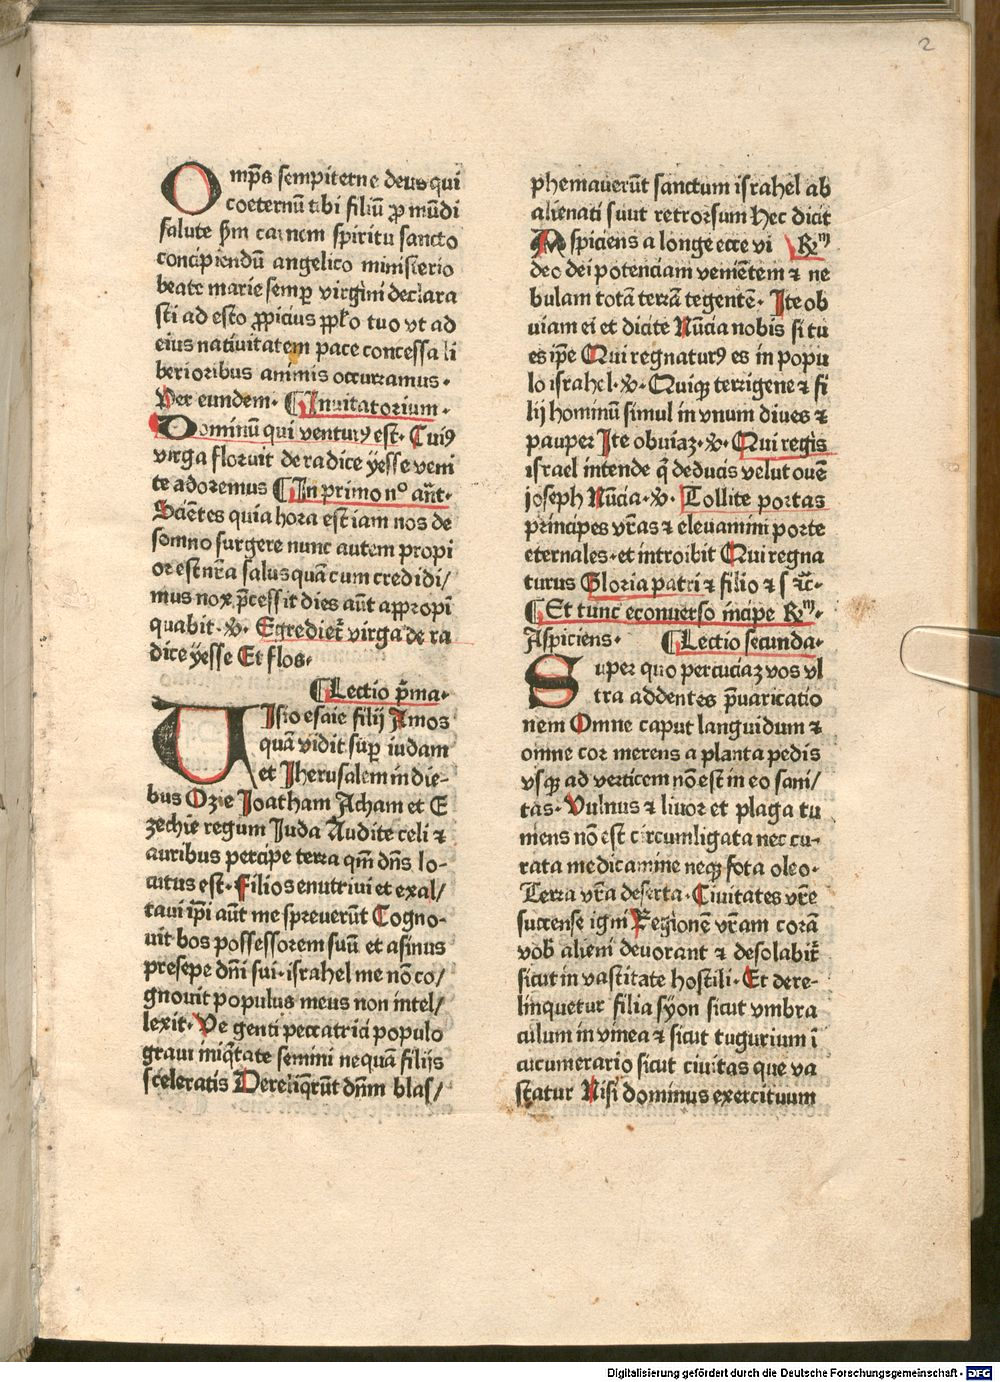 2
Omp̄s sempiterne deus qui
coeternū tibi filiū ꝓ mūdi
salute ẜm carnem spiritu sancto
concipiendū angelico ministerio
beate marie semꝑ virgini declara
sti ad esto ꝓpicius pp̄lo tuo vt ad
eius natiuitatem pace concessa li
berioribus animis occurramus.
Per eundem. ¶ Inuitatorium.
Dominū qui venturꝰ est. Cuiꝰ
virga floruit de radice yesse veni
te adoremus ¶ In primo n° an̄t.
Sciētes quia hora est iam nos de
somno surgere nunc autem propi
or est nr̄a salus quā cum credidi/
mus nox p̄cessit dies aūt appropī
quabit. ℣. Egrediet᷑ virga de ra
dice yesse Et flos.
¶ Lectio p̄ma.
Visio esaie filij Amos
quā vidit suꝑ iudam
et Jherusalem in die-
bus Ozie Joatham Acham et E
zechie regum Juda Audite celi ⁊
auribus percipe terra qm̄ dn̄s lo-
cutus est. Filios enutriui et exal/
taui ip̄i aūt me spreuerūt Cogno-
uit bos possessorem suū et asinus
presepe dn̄i sui. israhel me nō co/
gnouit populus meus non intel/
lexit. Ve genti peccatrici populo
graui iniq̄tate semini nequā filijs
sceleratis Dereliq̄rūt dn̄m blas/
phemauerūt sanctum israhel ab
alienati sunt retrorsum Hec dicit
Aspiciens a longe ecce vi ℞ᵐ
deo dei potenciam veniētem ⁊ ne
bulam totā terrā tegentē. Ite ob
uiam ei et dicite Nūcia nobis si tu
es ip̄e Qui regnaturꝰ es in popu
lo israhel. ℣. Quiqꝫ terrigene ⁊ fi
lij hominū simul in vnum diues ⁊
pauper Ite obuiaꝫ. ℣. Qui regis
israel intende q̄ deducis velut ouē
joseph Nūcia. ℣. Tollite portas
principes vr̄as ⁊ eleuamini porte
eternales. et introibit Qui regna
turus Gloria patri ⁊ filio ⁊ s rc̄.
¶ Et tunc econuerso incipe ℞ᵐ.
Aspiciens. ¶ Lectio secunda.
Super quo percuciaꝫ vos vl
tra addentes p̄uaricatio
nem Omne caput languidum ⁊
omne cor merens a planta pedis
vsqꝫ ad verticem nō est in eo sani/
tas. Vulnus ⁊ liuor et plaga tu
mens nō est circumligata nec cu-
rata medicamine neqꝫ fota oleo.
Terra vr̄a deserta. Ciuitates vr̄e
succense igni Regionē vr̄am corā
vob̄ alieni deuorant ⁊ desolabit᷑
sicut in vastitate hostili. Et dere-
linquetur filia syon sicut vmbra
culum in vinea ⁊ sicut tugurium ī
cucumerario sicut ciuitas que va
statur Nisi dominus exercituum
Digitalisierung gefördert durch die Deutsche Forschungsgemeinschaft - DFG